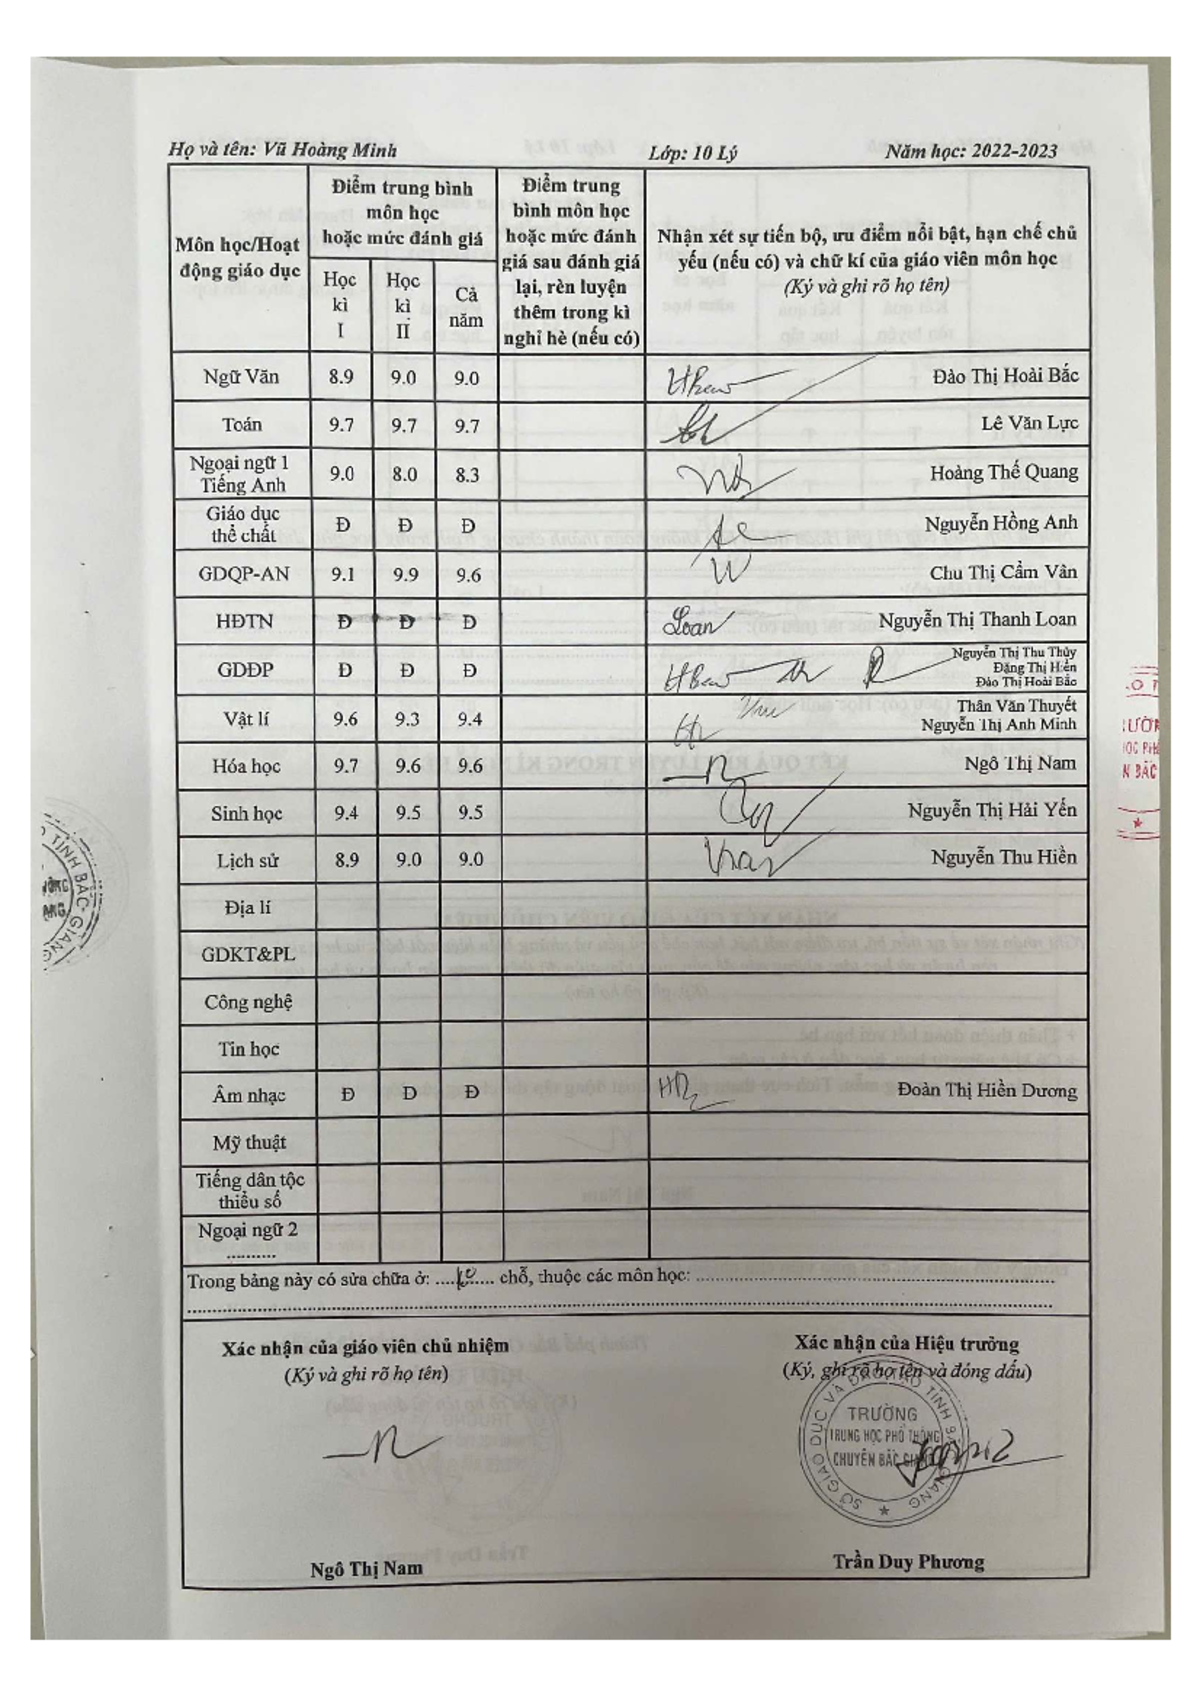 Họ và tên: Vũ Hoàng Minh Lớp: 10 Lý Năm học: 2022-2023
Môn học/Hoạt động giáo dục
Điểm trung bình môn học hoặc mức đánh giá
Học kì I
Học kì II
Cả năm
Điểm trung bình môn học hoặc mức đánh giá sau đánh giá lại, rèn luyện thêm trong kì nghỉ hè (nếu có)
Nhận xét sự tiến bộ, ưu điểm nổi bật, hạn chế chủ yếu (nếu có) và chữ kí của giáo viên môn học
(Ký và ghi rõ họ tên)
Ngữ Văn 8.9 9.0 9.0 Đào Thị Hoài Bắc
Toán 9.7 9.7 9.7 Lê Văn Lực
Ngoại ngữ 1
Tiếng Anh 9.0 8.0 8.3 Hoàng Thế Quang
Giáo dục
thể chất Đ Đ Đ Nguyễn Hồng Anh
GDQP-AN 9.1 9.9 9.6 Chu Thị Cẩm Vân
HĐTN Đ Đ Đ Loan Nguyễn Thị Thanh Loan
GDĐP Đ Đ Đ Nguyễn Thị Thu Thủy
Đặng Thị Hiền
Đào Thị Hoài Bắc
Vật lí 9.6 9.3 9.4 Thân Văn Thuyết
Nguyễn Thị Anh Minh
Hóa học 9.7 9.6 9.6 Ngô Thị Nam
Sinh học 9.4 9.5 9.5 Nguyễn Thị Hải Yến
Lịch sử 8.9 9.0 9.0 Nguyễn Thu Hiền
Địa lí
GDKT&PL
Công nghệ
Tin học
Âm nhạc Đ Đ Đ Đoàn Thị Hiền Dương
Mỹ thuật
Tiếng dân tộc
thiểu số
Ngoại ngữ 2
..........
Trong bảng này có sửa chữa ở: ........ chỗ, thuộc các môn học: ........
Xác nhận của giáo viên chủ nhiệm
(Ký và ghi rõ họ tên)
Ngô Thị Nam
Xác nhận của Hiệu trưởng
(Ký, ghi rõ họ tên và đóng dấu)
SỞ GIÁO DỤC VÀ ĐÀO TẠO TỈNH BẮC GIANG
TRƯỜNG
TRUNG HỌC PHỔ THÔNG
CHUYÊN BẮC GIANG
Trần Duy Phương